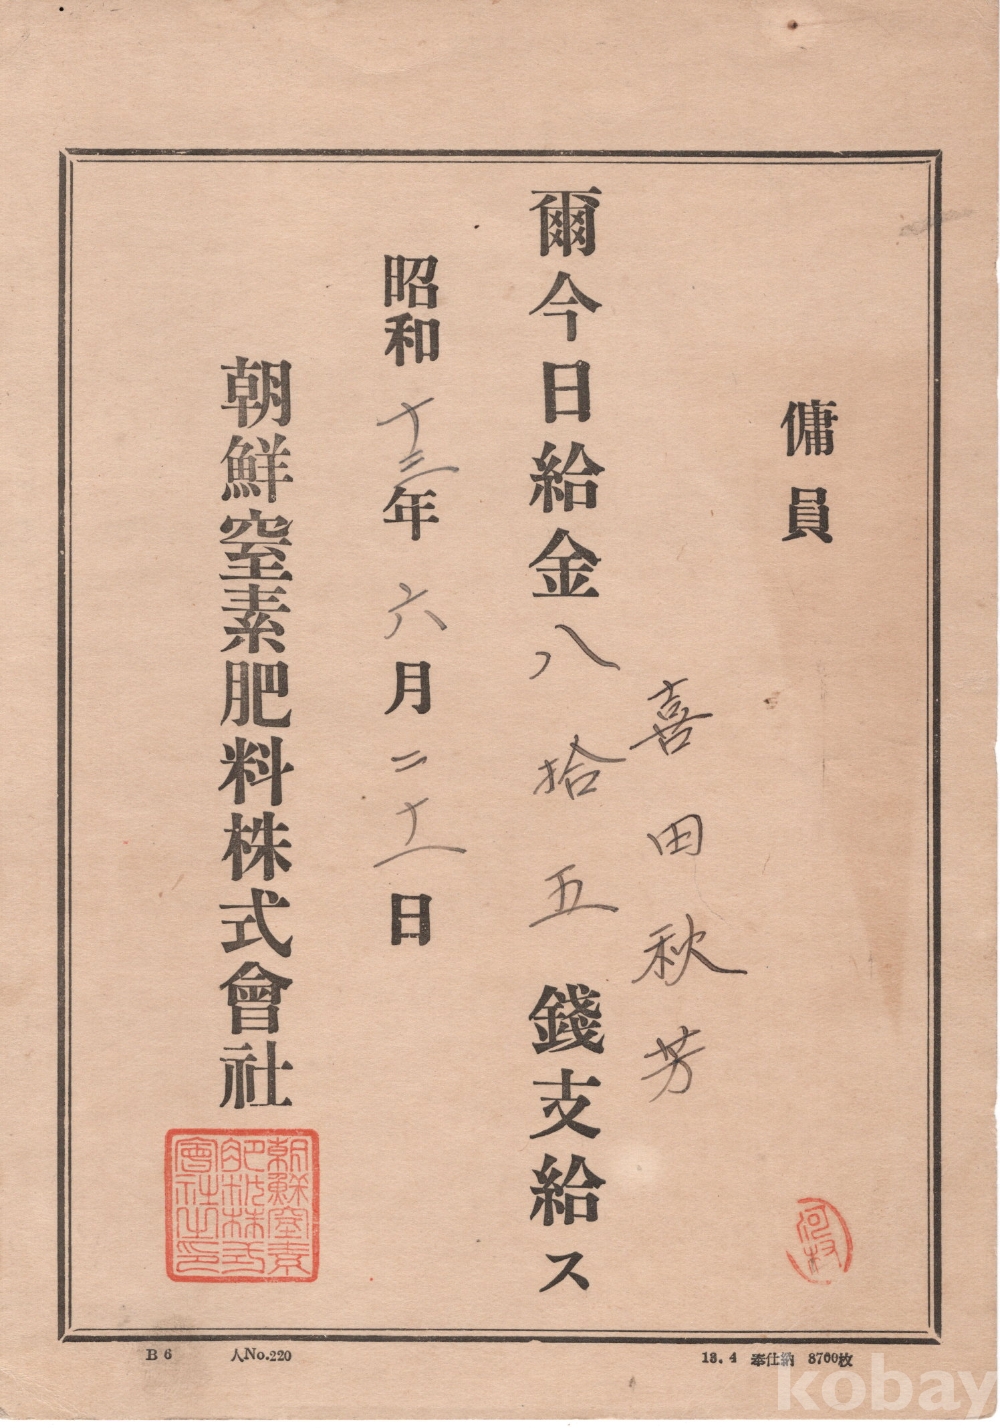 傭員
喜田秋芳
爾今日給金八拾五錢支給ス
昭和十三年六月二十一日
朝鮮窒素肥料株式會社
朝鮮窒素
肥料株式
會社之印
河村
B6 人No.220
13.4 奉仕納 8700枚
kobay